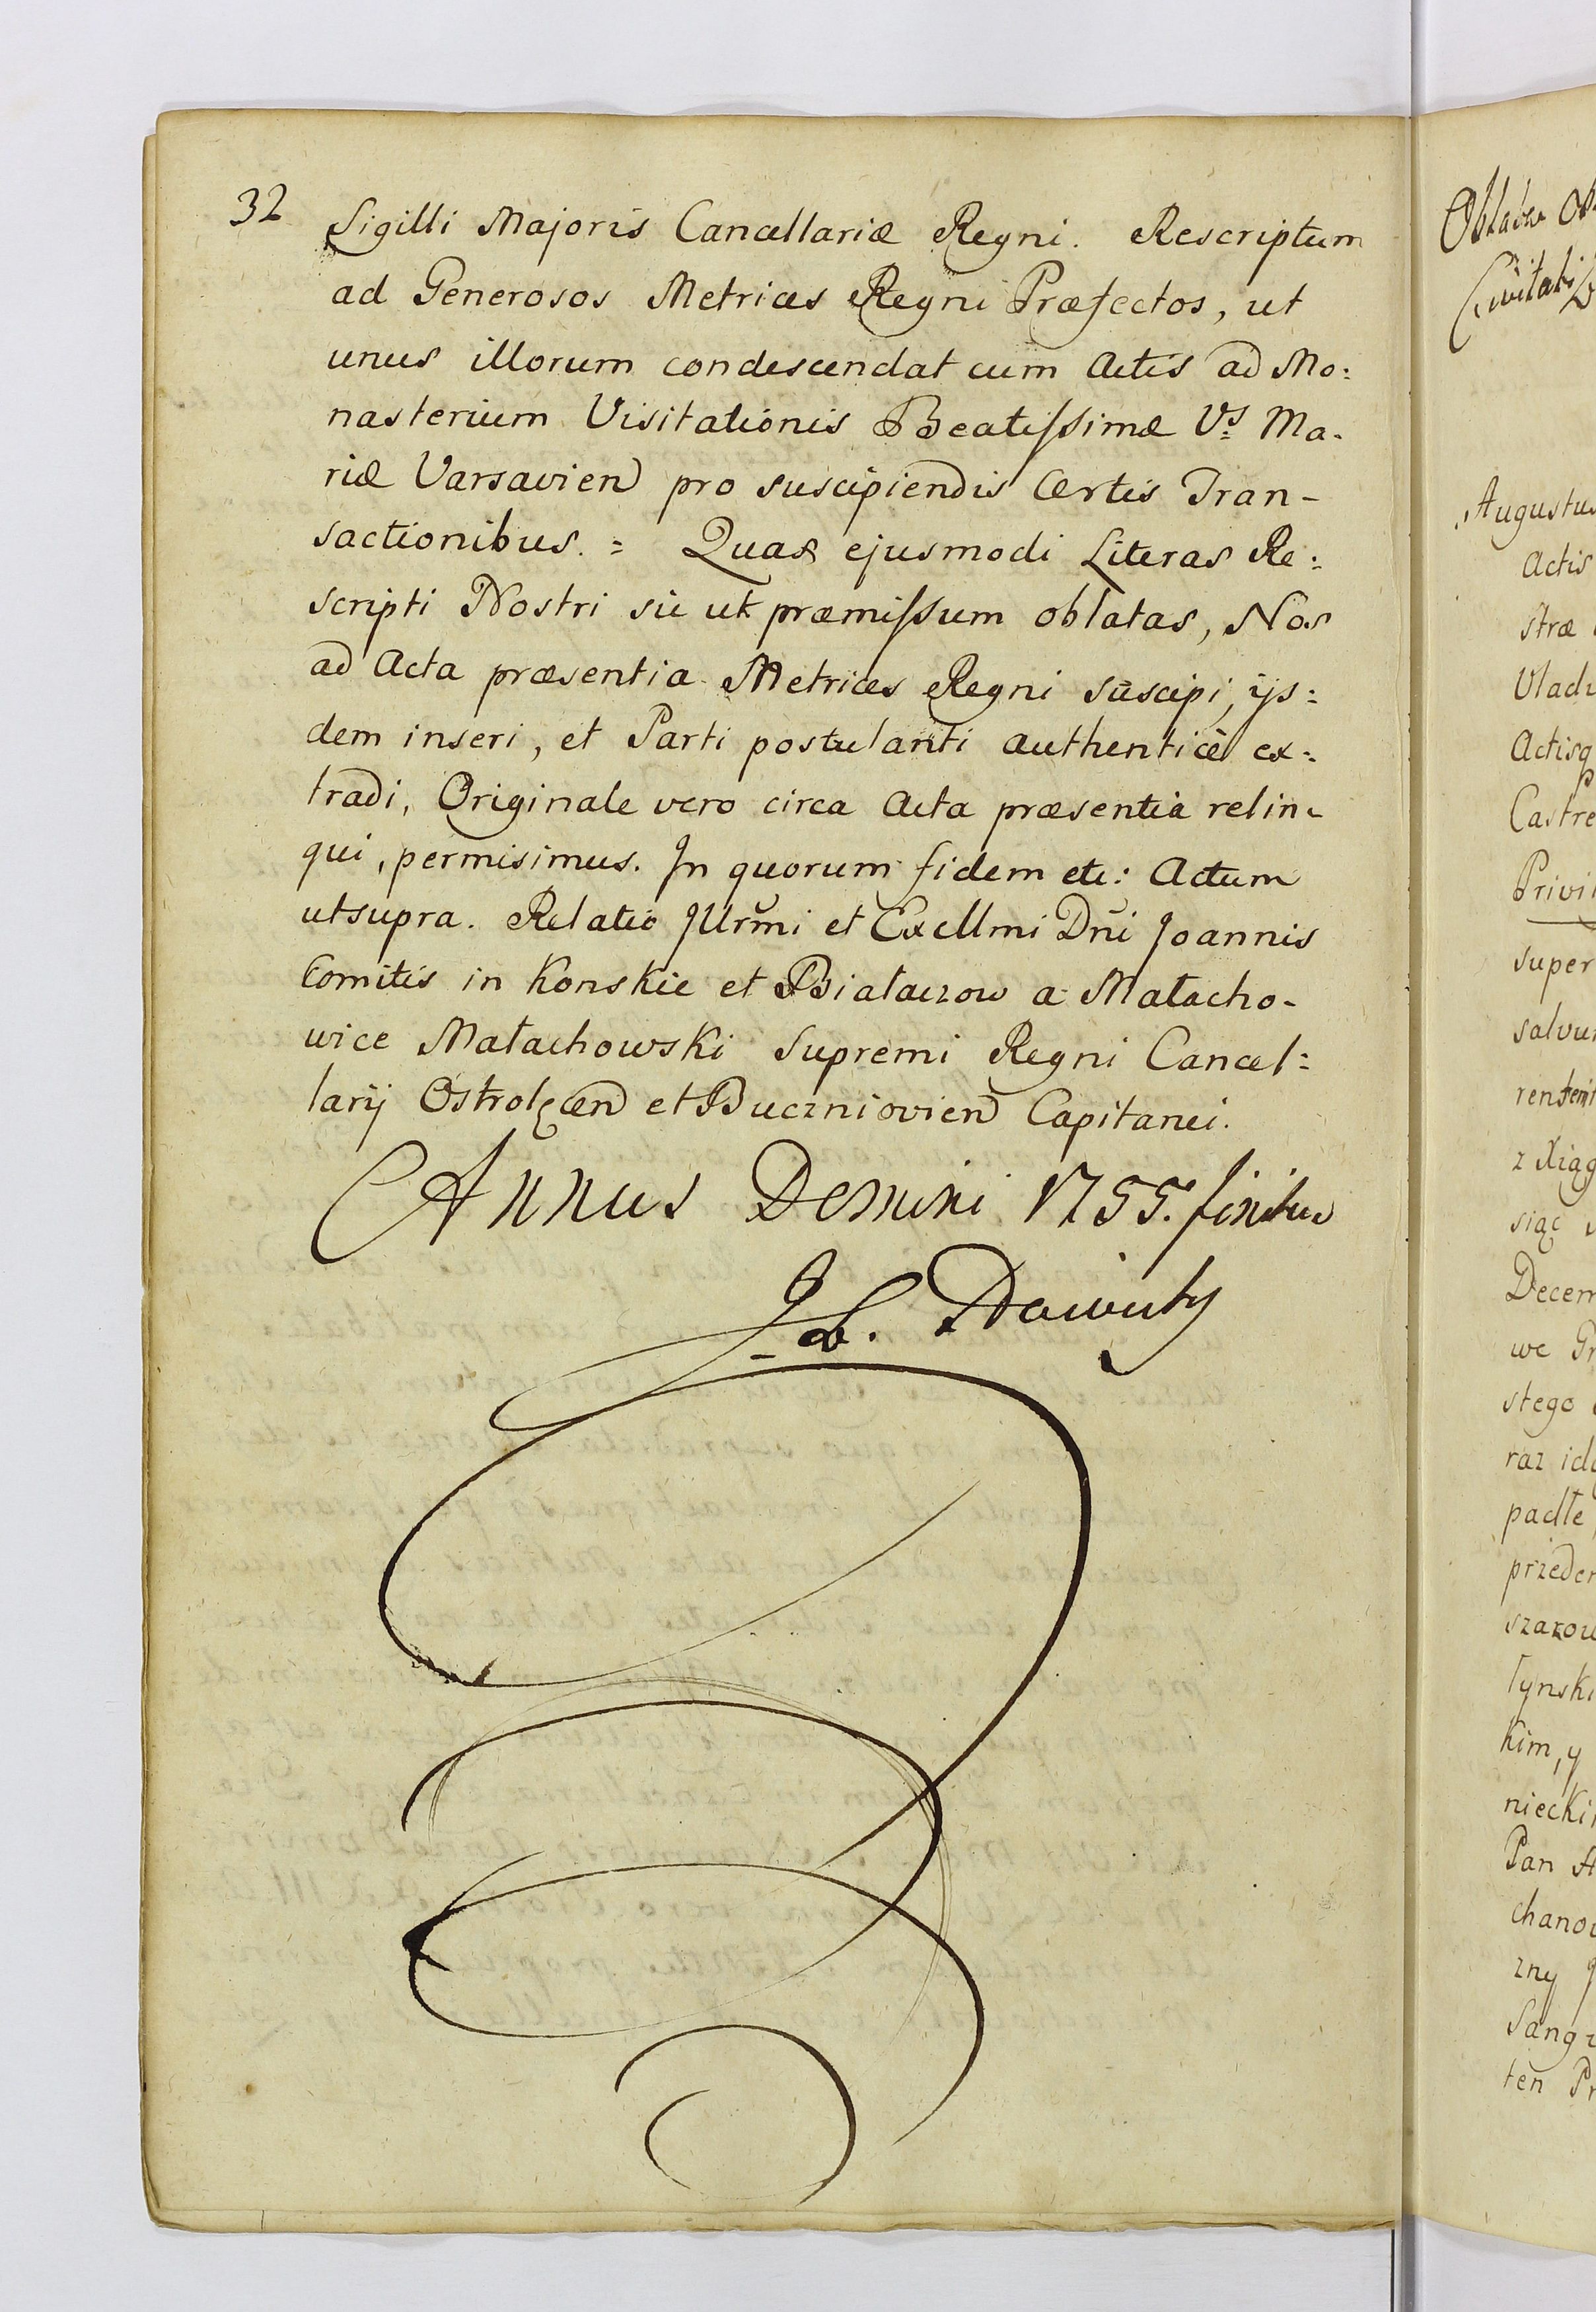 32
Sigilli Majoris Cancellariæ Regni. Rescriptum
ad Generosos Metrices Regni Præfectos, ut
unus illorum condescendat cum Actis ad Mo:
nasterium Visitationis Beatiſsimæ Vs Ma-
riæ Varsavien pro suscipiendis Certis Tran-
sactionibus. = Quas ejusmodi Literas Re:
scripti Nostri sic ut præmiſsum oblatas, Nos
ad Acta præsentia Metrices Regni suscipi, ijs:
dem inseri, et Parti postulanti authenticè ex:
tradi, Originale vero circa Acta præsentia relin-
qui, permisimus. In quorum fidem etc: Actum
utsupra. Relatio Jllrmi et Excllmi Dni Joannis
Comitis in Konskie et Białaczow a Małacho-
wice Małachowski Supremi Regni Cancel:
larij Ostrołęcen et Buczniovien Capitanei.
Annus Domini 1755. finitus
Oblata
Civitatis
Augustus
Actis
stræ
Vladi
Actisq
Castre
Privi
super
salvu
z Xiąg
siąc
Decem
we Gr
stego
raz idą
padłe
przeder
tynski
kim, y
niecki
Pan
chano
zny
Sang
ten Pr